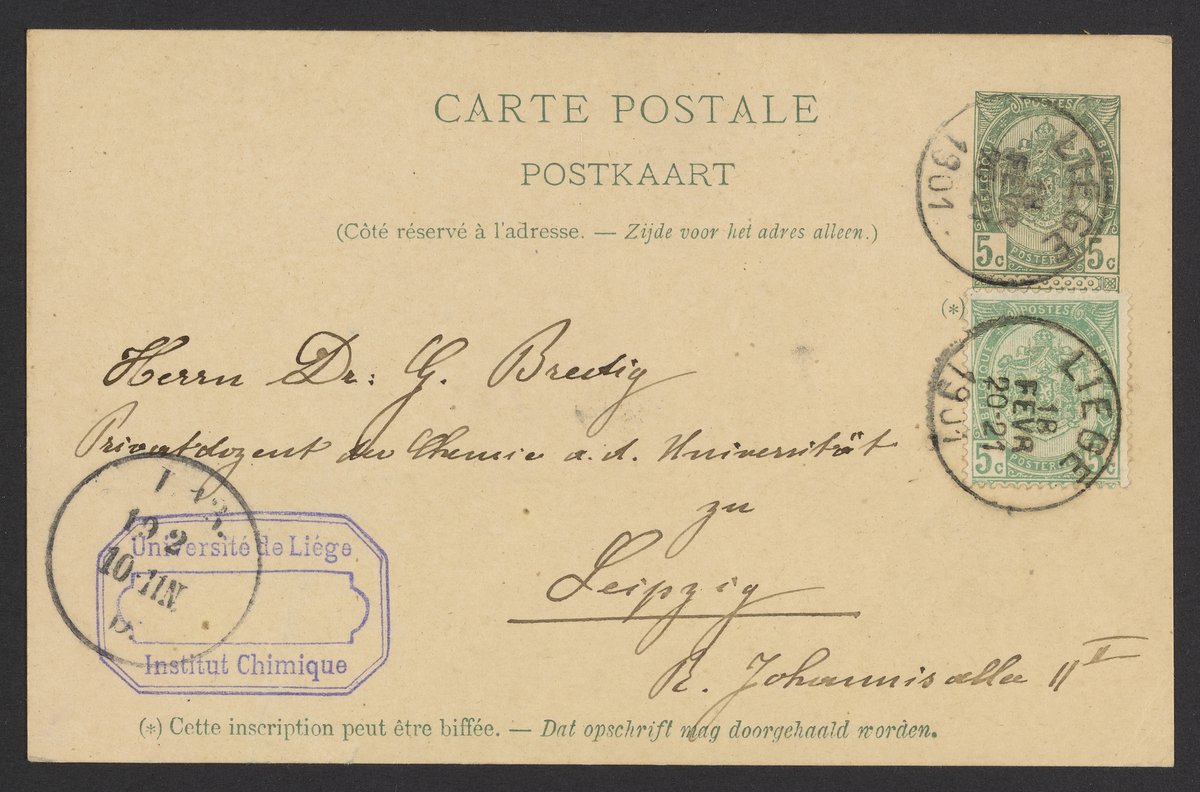 CARTE POSTALE
POSTKAART
(Côté réservé à l'adresse. — Zijde voor het adres alleen.)
POSTES
BELGIQUE
5c POSTERIJEN 5c
LIEGE
18
FEVR
1901
(*)
POSTES
BELGIQUE
5c POSTERIJEN 5c
LIEGE
18
FEVR
20-21
1901
Herrn Dr: G. Bredig
Privatdozent der Chemie a. d. Universität
zu
Leipzig
R. Johannisallee 11 II
19 2
10-11N
Université de Liége
Institut Chimique
(*) Cette inscription peut être biffée. — Dat opschrift mag doorgehaald worden.